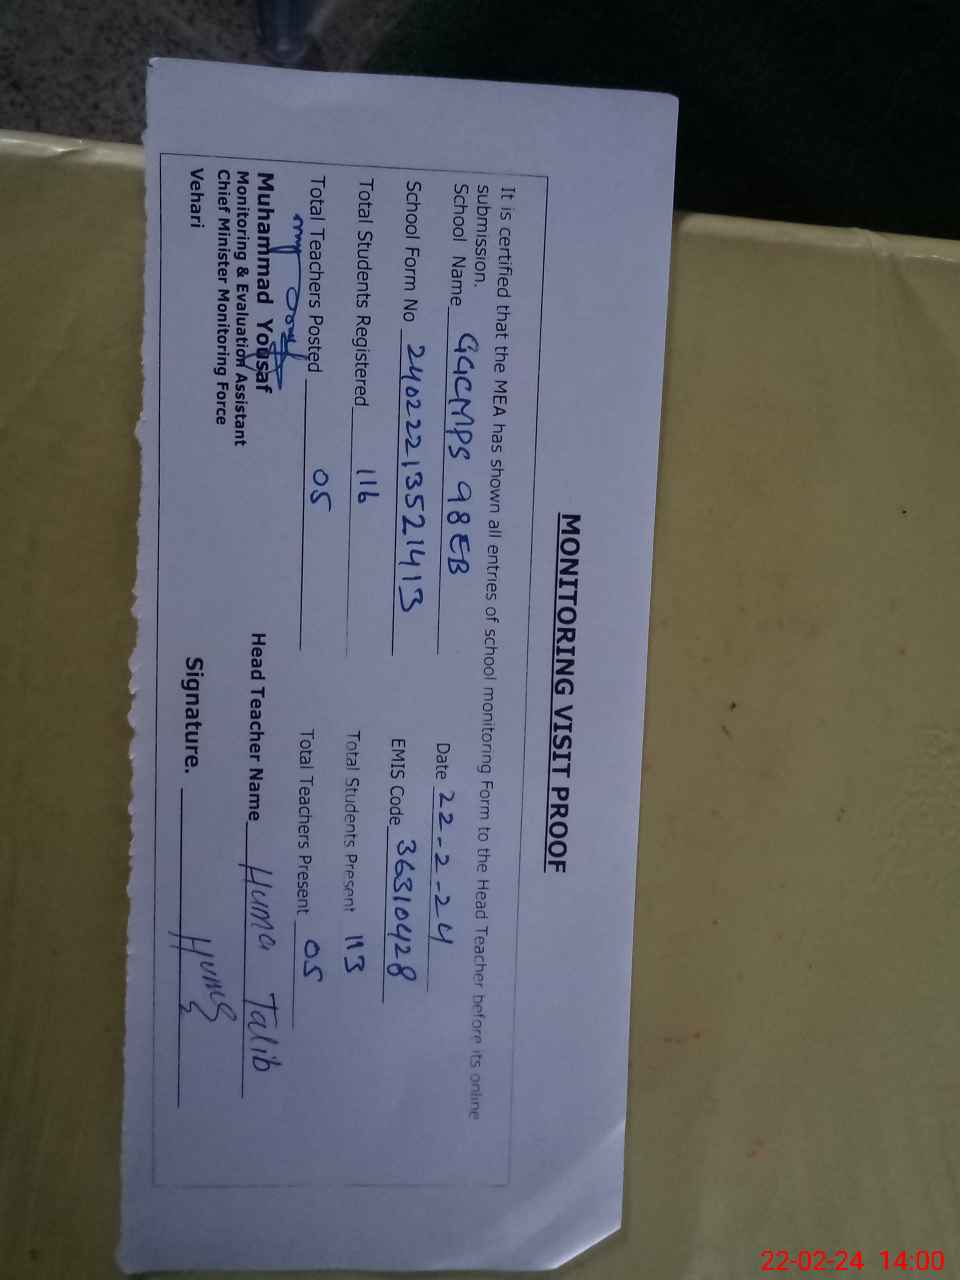 MONITORING VISIT PROOF
It is certified that the MEA has shown all entries of school monitoring Form to the Head Teacher before its online
submission.
School Name GGCMPS 98EB Date 22-2-24
School Form No 24022213521413 EMIS Code 36310428
Total Students Registered 116 Total Students Present 113
Total Teachers Posted 05 Total Teachers Present 05
Muhammad Yousaf
Monitoring & Evaluation Assistant
Chief Minister Monitoring Force
Vehari
Head Teacher Name Huma Talib
Signature. Huma
22-02-24 14:00